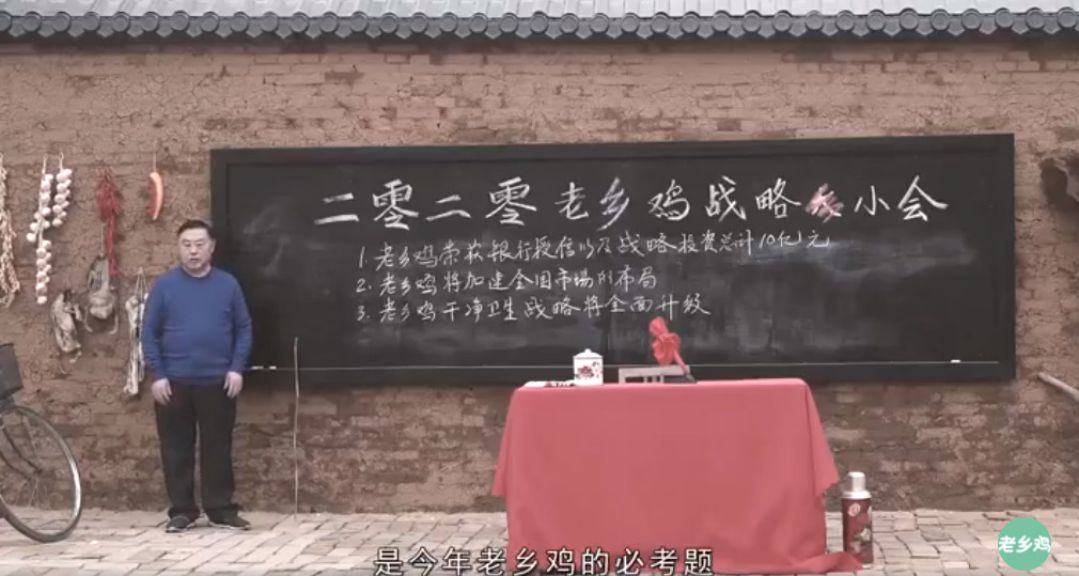 二零二零老乡鸡战略小会
1. 老乡鸡荣获银行授信以及战略投资总计10亿元
2. 老乡鸡将加速全国市场的布局
3. 老乡鸡干净卫生战略将全面升级
老乡鸡
是今年老乡鸡的必考题